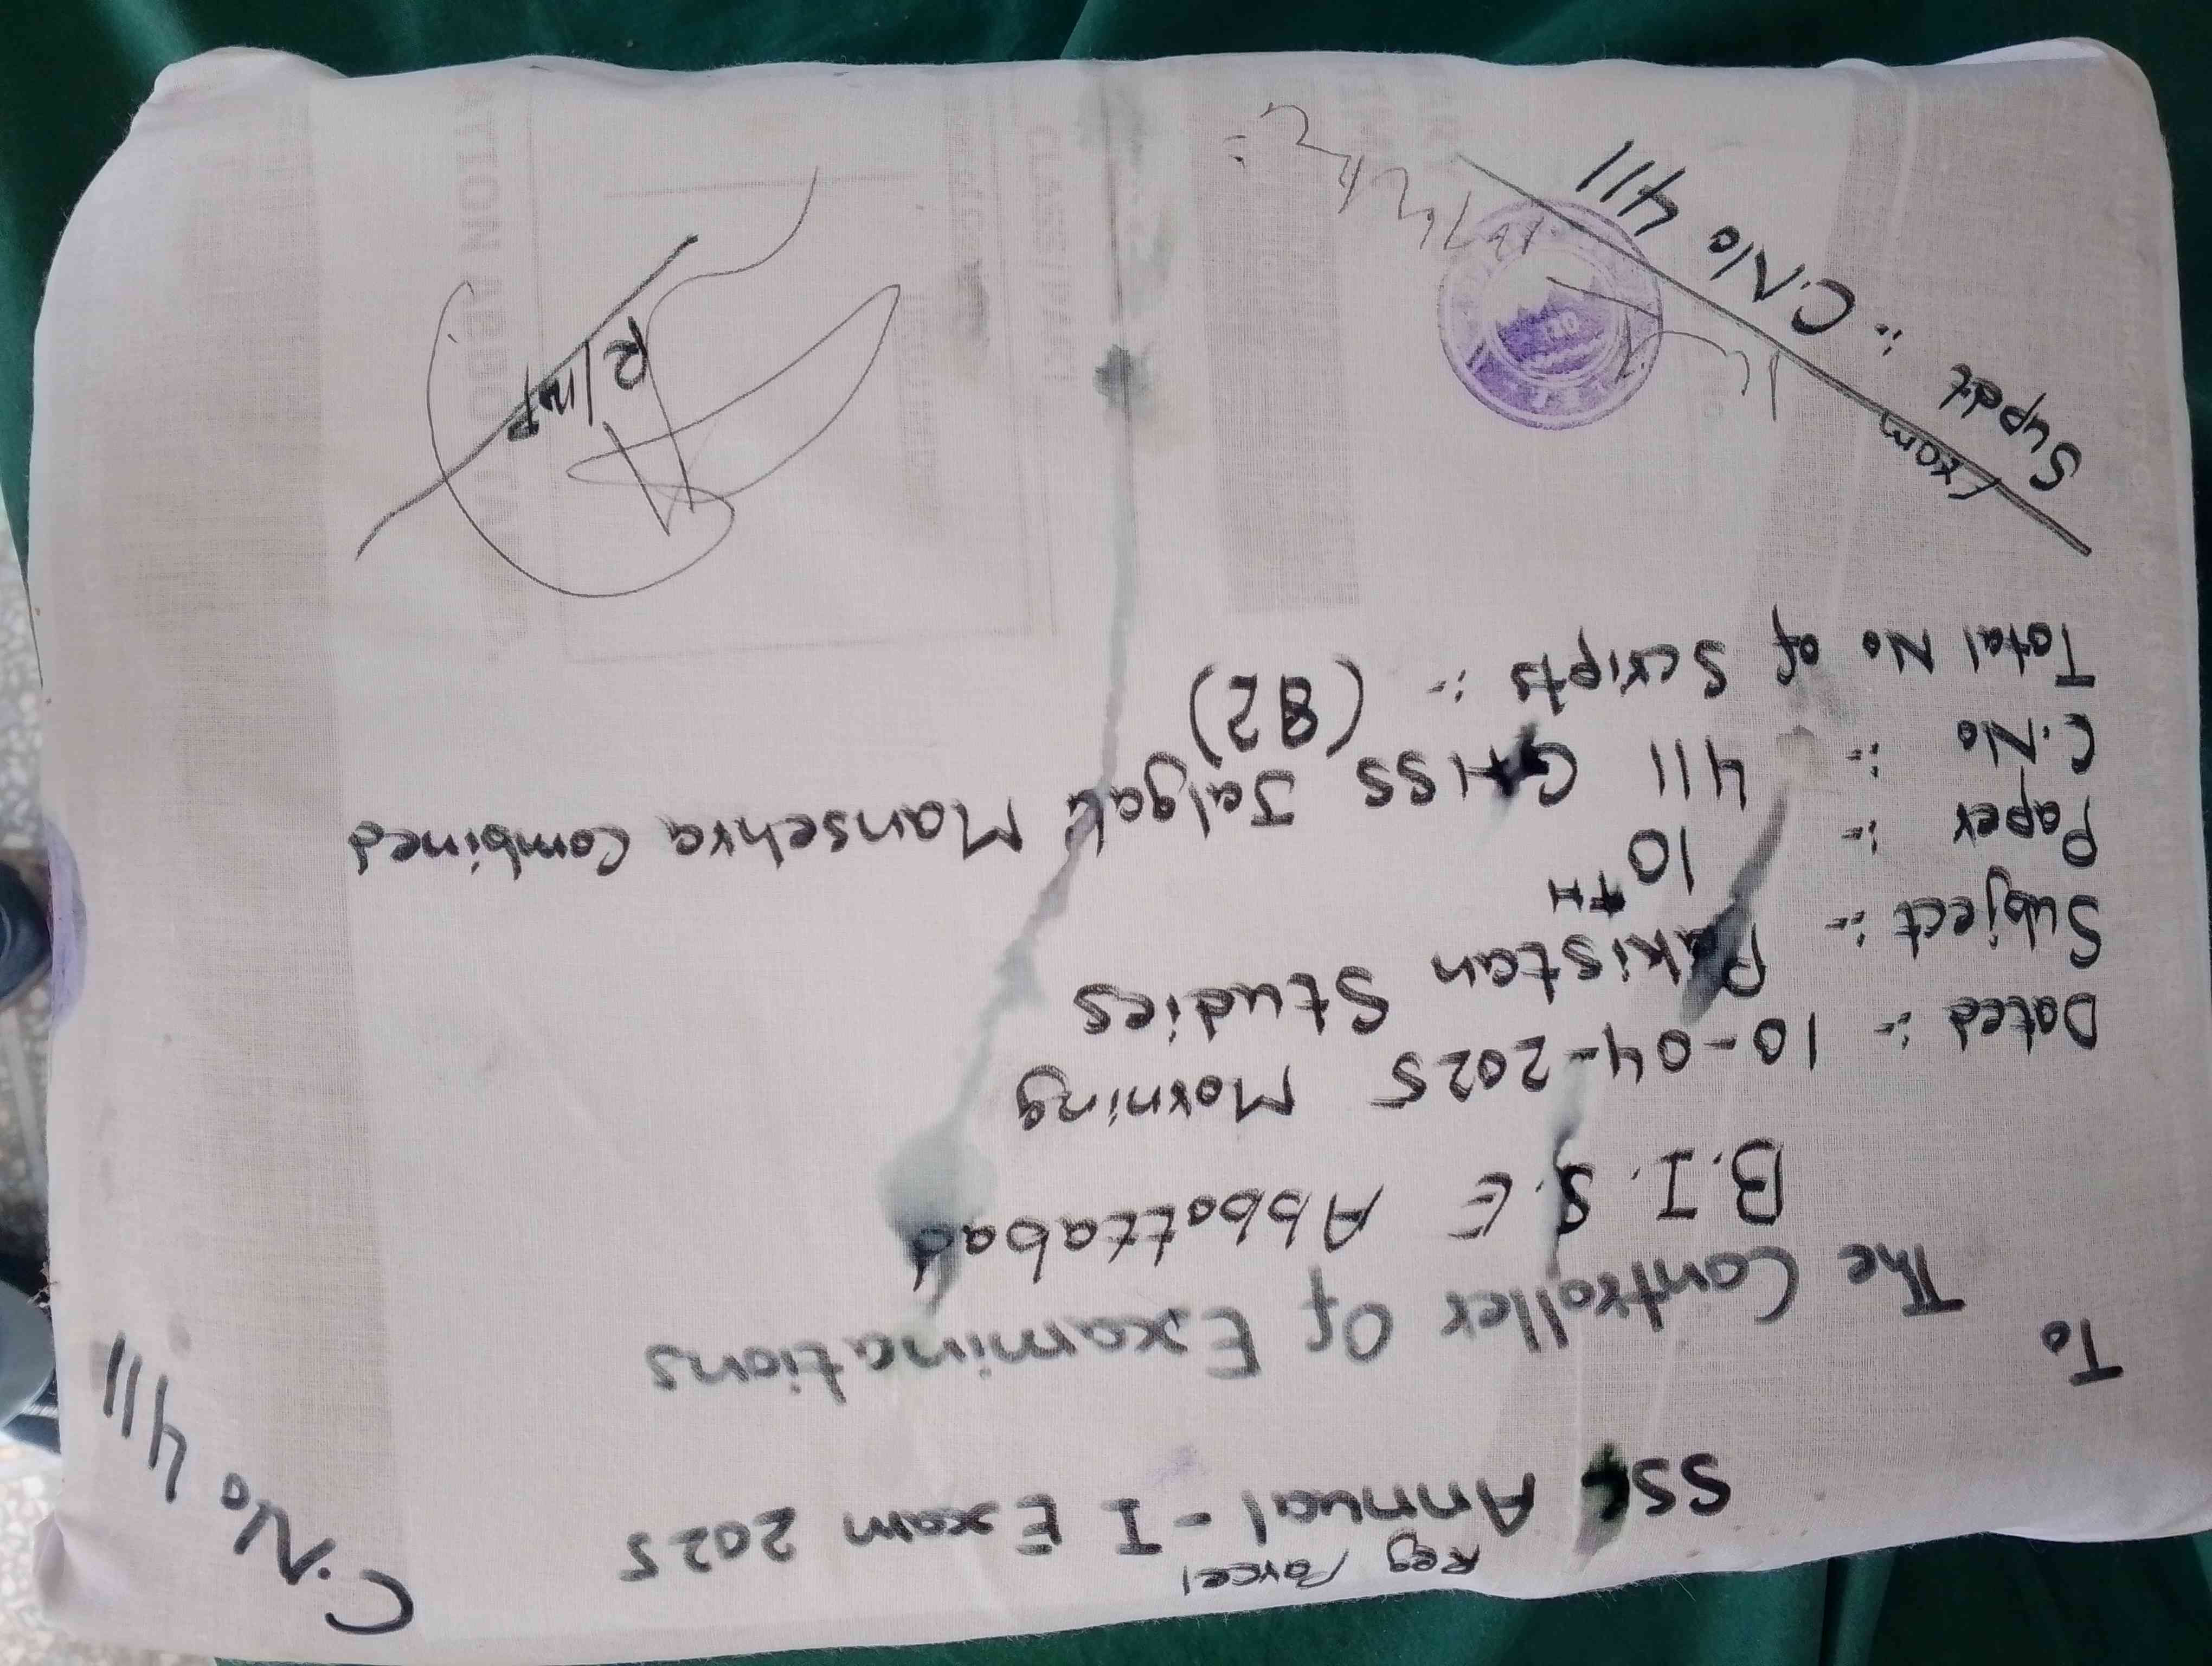 Reg Parcel
SSC Annual - I Exam 2025
C.No 411
To
The Controller Of Examinations
B.I.S.E Abbottabad
Dated :- 10-04-2025 Morning
Subject :- Pakistan Studies
Paper :- 10TH
C.No :- 411 GHSS Jalgali Mansehra Combined
Total No of Scripts :- (82)
Supdt :- C.No 411
Exam
R/Insp